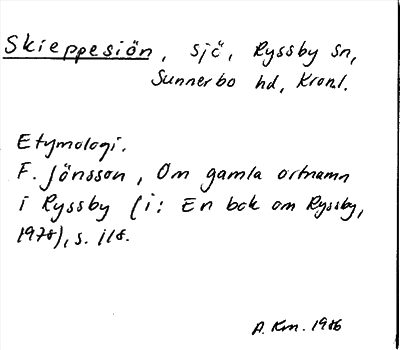 Skieppesiön, sjö, Ryssby sn,
Sunnerbo hd, Kronl.
Etymologi.
F. Jönsson, Om gamla ortnamn
i Ryssby (i: En bok om Ryssby,
1978), s. 118.
A. Km. 1986